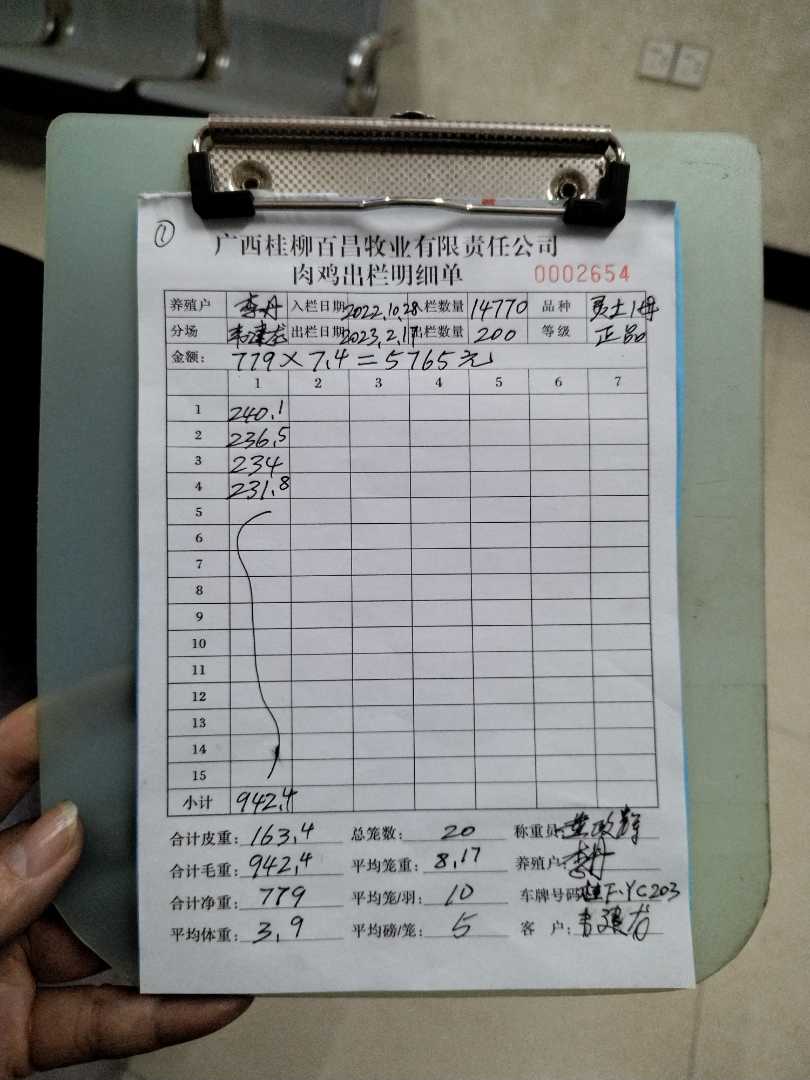 ①
广西桂柳百昌牧业有限责任公司
肉鸡出栏明细单 0002654
养殖户 李丹 入栏日期 2022.10.28 入栏数量 14770 品种
分场 韦建龙 出栏日期 2023.2.17 出栏数量 200 等级 正品
金额: 779×7.4=5765元
1 2 3 4 5 6 7
1 240.1
2 236.5
3 234
4 231.8
5
6
7
8
9
10
11
12
13
14
15
小计 942.4
合计皮重: 163.4 总笼数: 20 称重员:
合计毛重: 942.4 平均笼重: 8.17 养殖户: 李丹
合计净重: 779 平均笼/羽: 10 车牌号码: 桂F·YC203
平均体重: 3.9 平均磅/笼: 5 客 户: 韦建龙